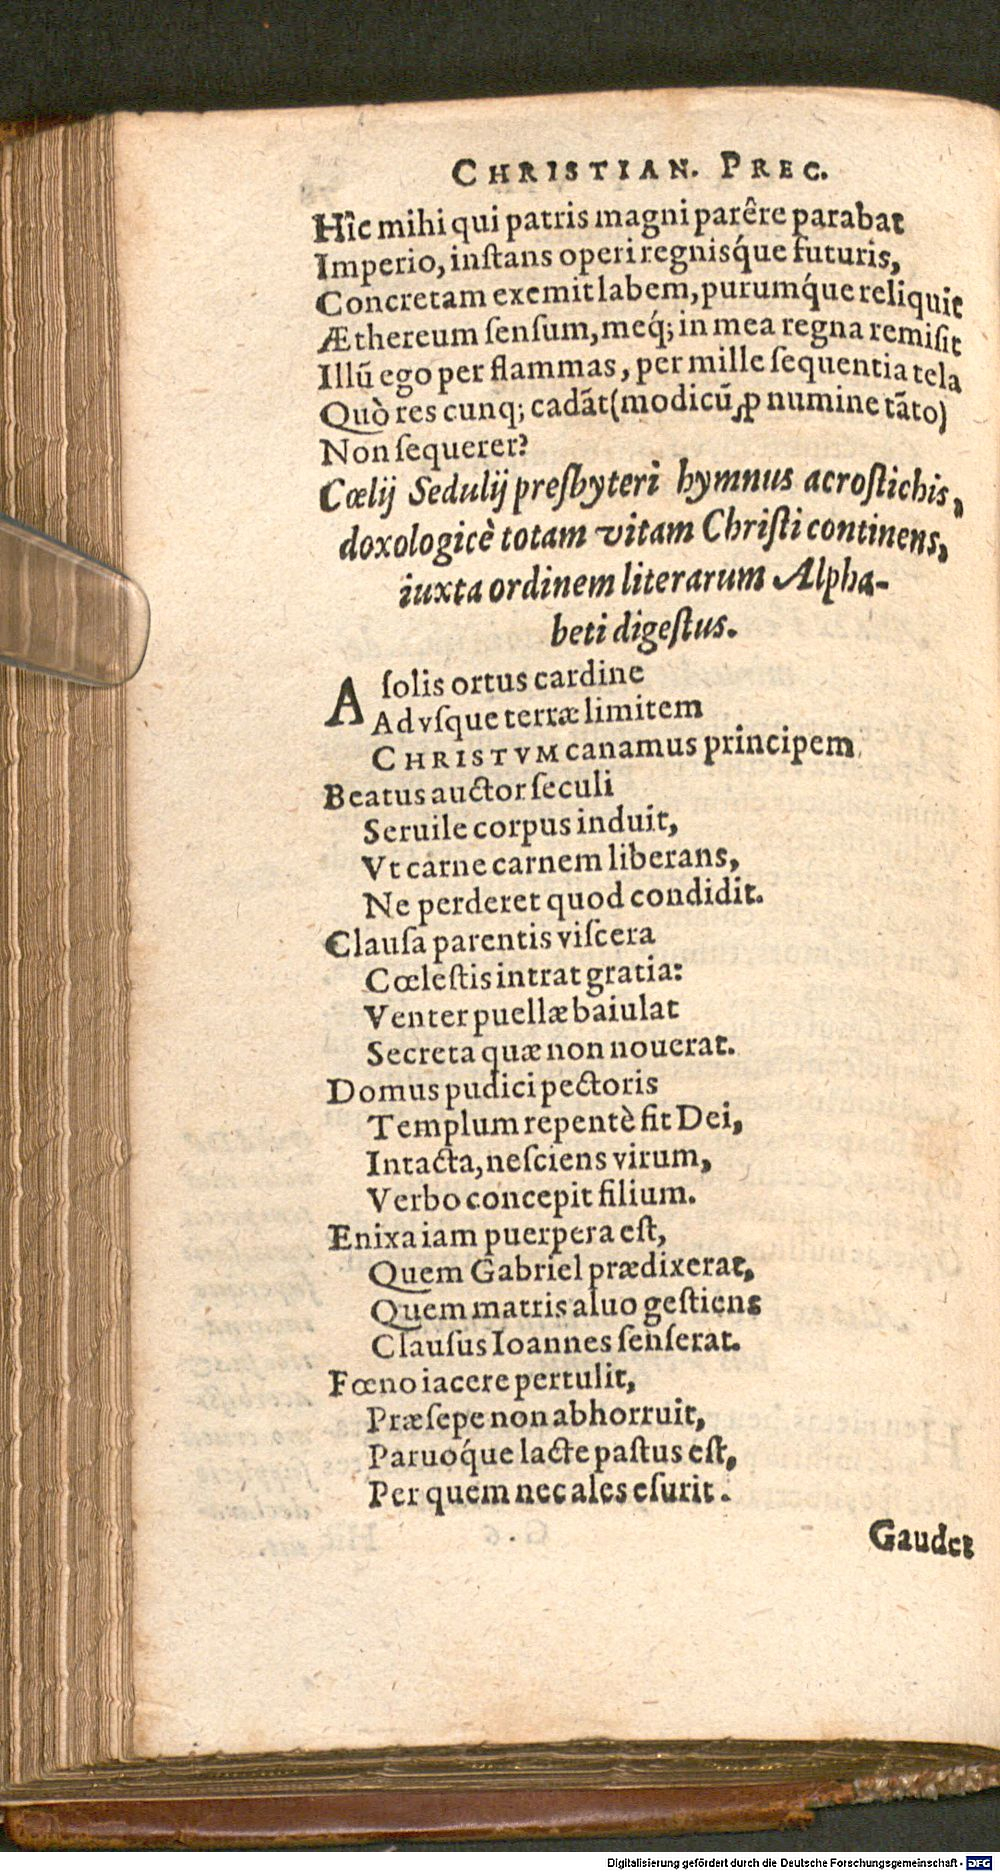 CHRISTIAN. PREC.
Hîc mihi qui patris magni parêre parabat
Imperio, inſtans operi regnisq́ue futuris,
Concretam exemit labem, purumq́ue reliquit
Æthereum ſenſum, meq́; in mea regna remiſit
Illũ ego per flammas, per mille ſequentia tela
Quò res cunq; cadãt (modicũ ꝓ numine tãto)
Non ſequerer?
Cœlij Sedulij presbyteri hymnus acroſtichis,
doxologicè totam vitam Chriſti continens,
iuxta ordinem literarum Alpha-
beti digeſtus.
A ſolis ortus cardine
Ad vſque terræ limitem
CHRISTVM canamus principem
Beatus auctor ſeculi
Seruile corpus induit,
Vt carne carnem liberans,
Ne perderet quod condidit.
Clauſa parentis viſcera
Cœleſtis intrat gratia:
Venter puellæ baiulat
Secreta quæ non nouerat.
Domus pudici pectoris
Templum repentè fit Dei,
Intacta, neſciens virum,
Verbo concepit filium.
Enixa iam puerpera eſt,
Quem Gabriel prædixerat,
Quem matris aluo geſtiens
Clauſus Ioannes ſenſerat.
Fœno iacere pertulit,
Præſepe non abhorruit,
Paruoq́ue lacte paſtus eſt,
Per quem nec ales eſurit.
Gaudet
Digitalisierung gefördert durch die Deutsche Forschungsgemeinschaft - DFG